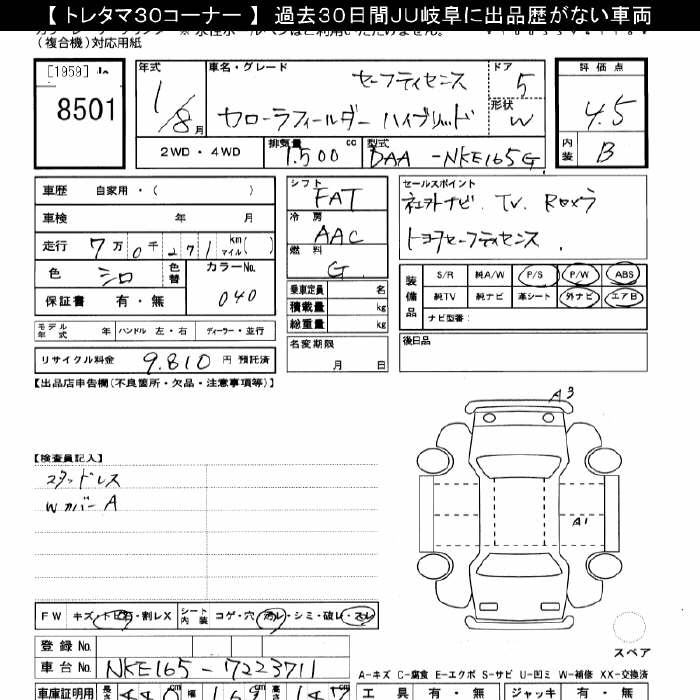 【 トレタマ30コーナー 】 過去30日間JU岐阜に出品歴がない車両
(複合機)対応用紙
[1959]
8501
年式
1/8月
車名・グレード
セーフティセンス
カローラフィールダー ハイブリッド
ドア
5
形状
W
評価点
4.5
内装
B
2WD・4WD
排気量
1.500 cc
型式
DAA -NKE165G
車歴 自家用・( )
車検 年 月
走行 7万0千271 km マイル( )
色 シロ 色替 カラーNo. 040
保証書 有・無
モデル年式 年 ハンドル 左・右 ディーラー・並行
リサイクル料金 9.810 円 預託済
シフト
FAT
冷房
AAC
燃料
G
乗車定員 名
積載量 kg
総重量 kg
名変期限
月 日
セールスポイント
社外ナビ. TV. Rカメラ
トヨタセーフティセンス.
装備品
S/R 純A/W P/S P/W ABS
純TV 純ナビ 革シート 外ナビ エアB
ナビ型番:
後日品
【出品店申告欄(不良箇所・欠品・注意事項等)】
【検査員記入】
スタッドレス
Wカバー A
A3
A1
スペア
FW キズ・トビ石・割レX シート内装 コゲ・穴・汚レ・シミ・破レ・スレ
登録No.
車台No. NKE165-7223711
A-キズ C-腐食 E-エクボ S-サビ U-凹ミ W-補修 XX-交換済
車庫証明用 長さ 幅 高さ
工具 有・無 ジャッキ 有・無